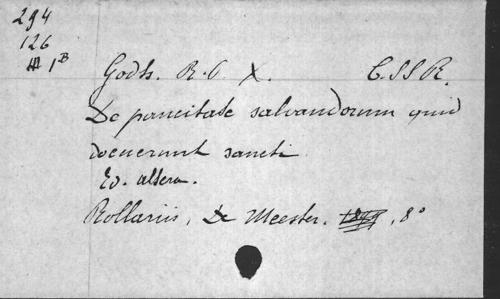 294
126
III 1B
Godts. R. P. X. C.SS R.
De paucitate salvandorum quid
docuerunt sancti.
Ed. altera.
Rollariis, De Meester. 1899, 8°